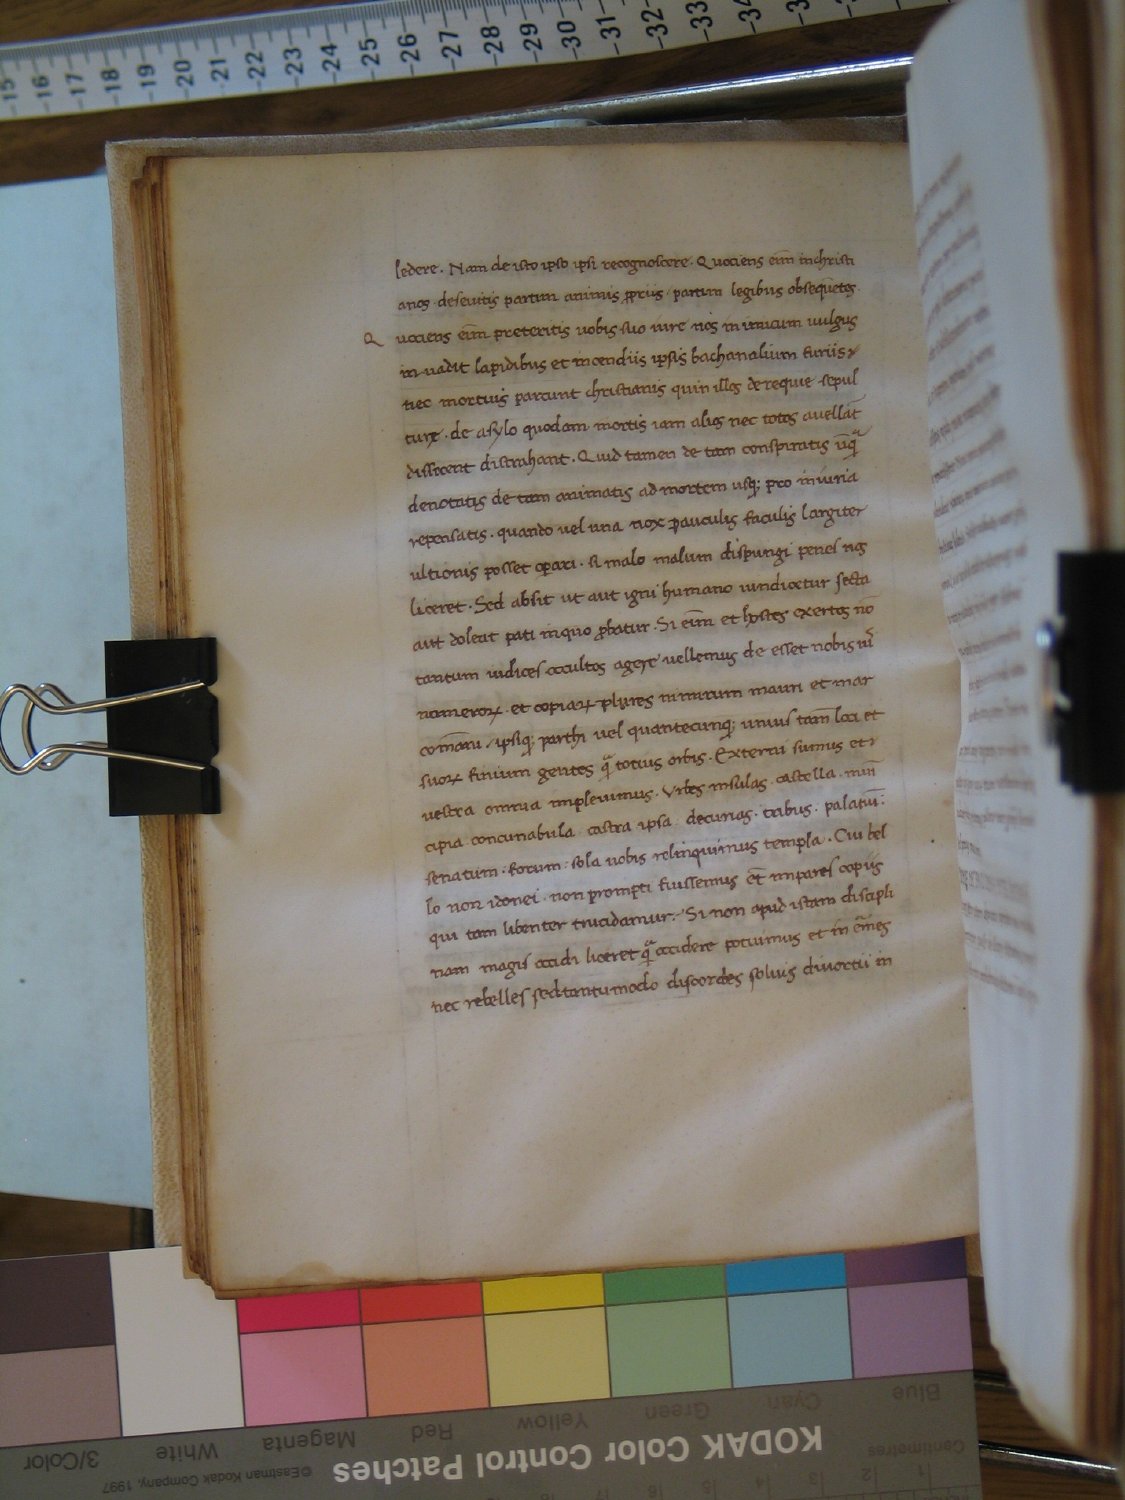 -15 -16 -17 -18 -19 -20 -21 -22 -23 -24 -25 -26 -27 -28 -29 -30 -31 -32 -33 -34
ledere. Nam de isto ipso ipsi recognoscere. Quociens eim̄ in christi
anos deseuitis partim animis ꝓpriis partim legibus obsequētes.
Quociens eim̄ preteritis uobis suo iure nos inimicum uulgus
inuadit lapidibus et incendiis ipsis bachanalium furiis
nec mortuis parcunt christianis quin illos de requie sepul
ture. de asylo quodam mortis iam alios nec totos auellāt
dissecent distrahant. Quid tamen de tam conspiratis ūqᷓ
denotatis de tam animatis ad mortem usq; pro iniuria
repensatis. quando uel una nox ꝑauculis faculis largiter
ultionis posset oꝑari. si malo malum dispungi penes nos
liceret. Sed absit ut aut igni humano uindicetur secta
aut doleat pati in quo ꝓbatur. Si eim̄ et hostes exertos nō
tantum uindices occultos agere uellemus de esset nobis uis
numeroꝝ. et copiaꝝ plures nimirum mauri et mar
comāni, ipsiq; parthi uel quantecunq; unius tam̄ loci et
suoꝝ finium gentes qᷓ totius orbis. Externi sumus et
uestra omnia impleuimus. Vrbes insulas castella. mūi
cipia concinabula castra ipsa decurias. tribus. palatiū.
senatum. forum. sola uobis relinquimus templa. Cui bel
lo non idonei. non prompti fuissemus et̄ impares copiis
qui tam libenter trucidamur. Si non apud istam discipli
nam magis occidi liceret qᷓ occidere potuimus et in ermes
nec rebelles sed tantummodo discordes solius diuortii in
3/Color White Magenta Red Yellow Green Cyan Blue
©Eastman Kodak Company, 1997 KODAK Color Control Patches Centimetres